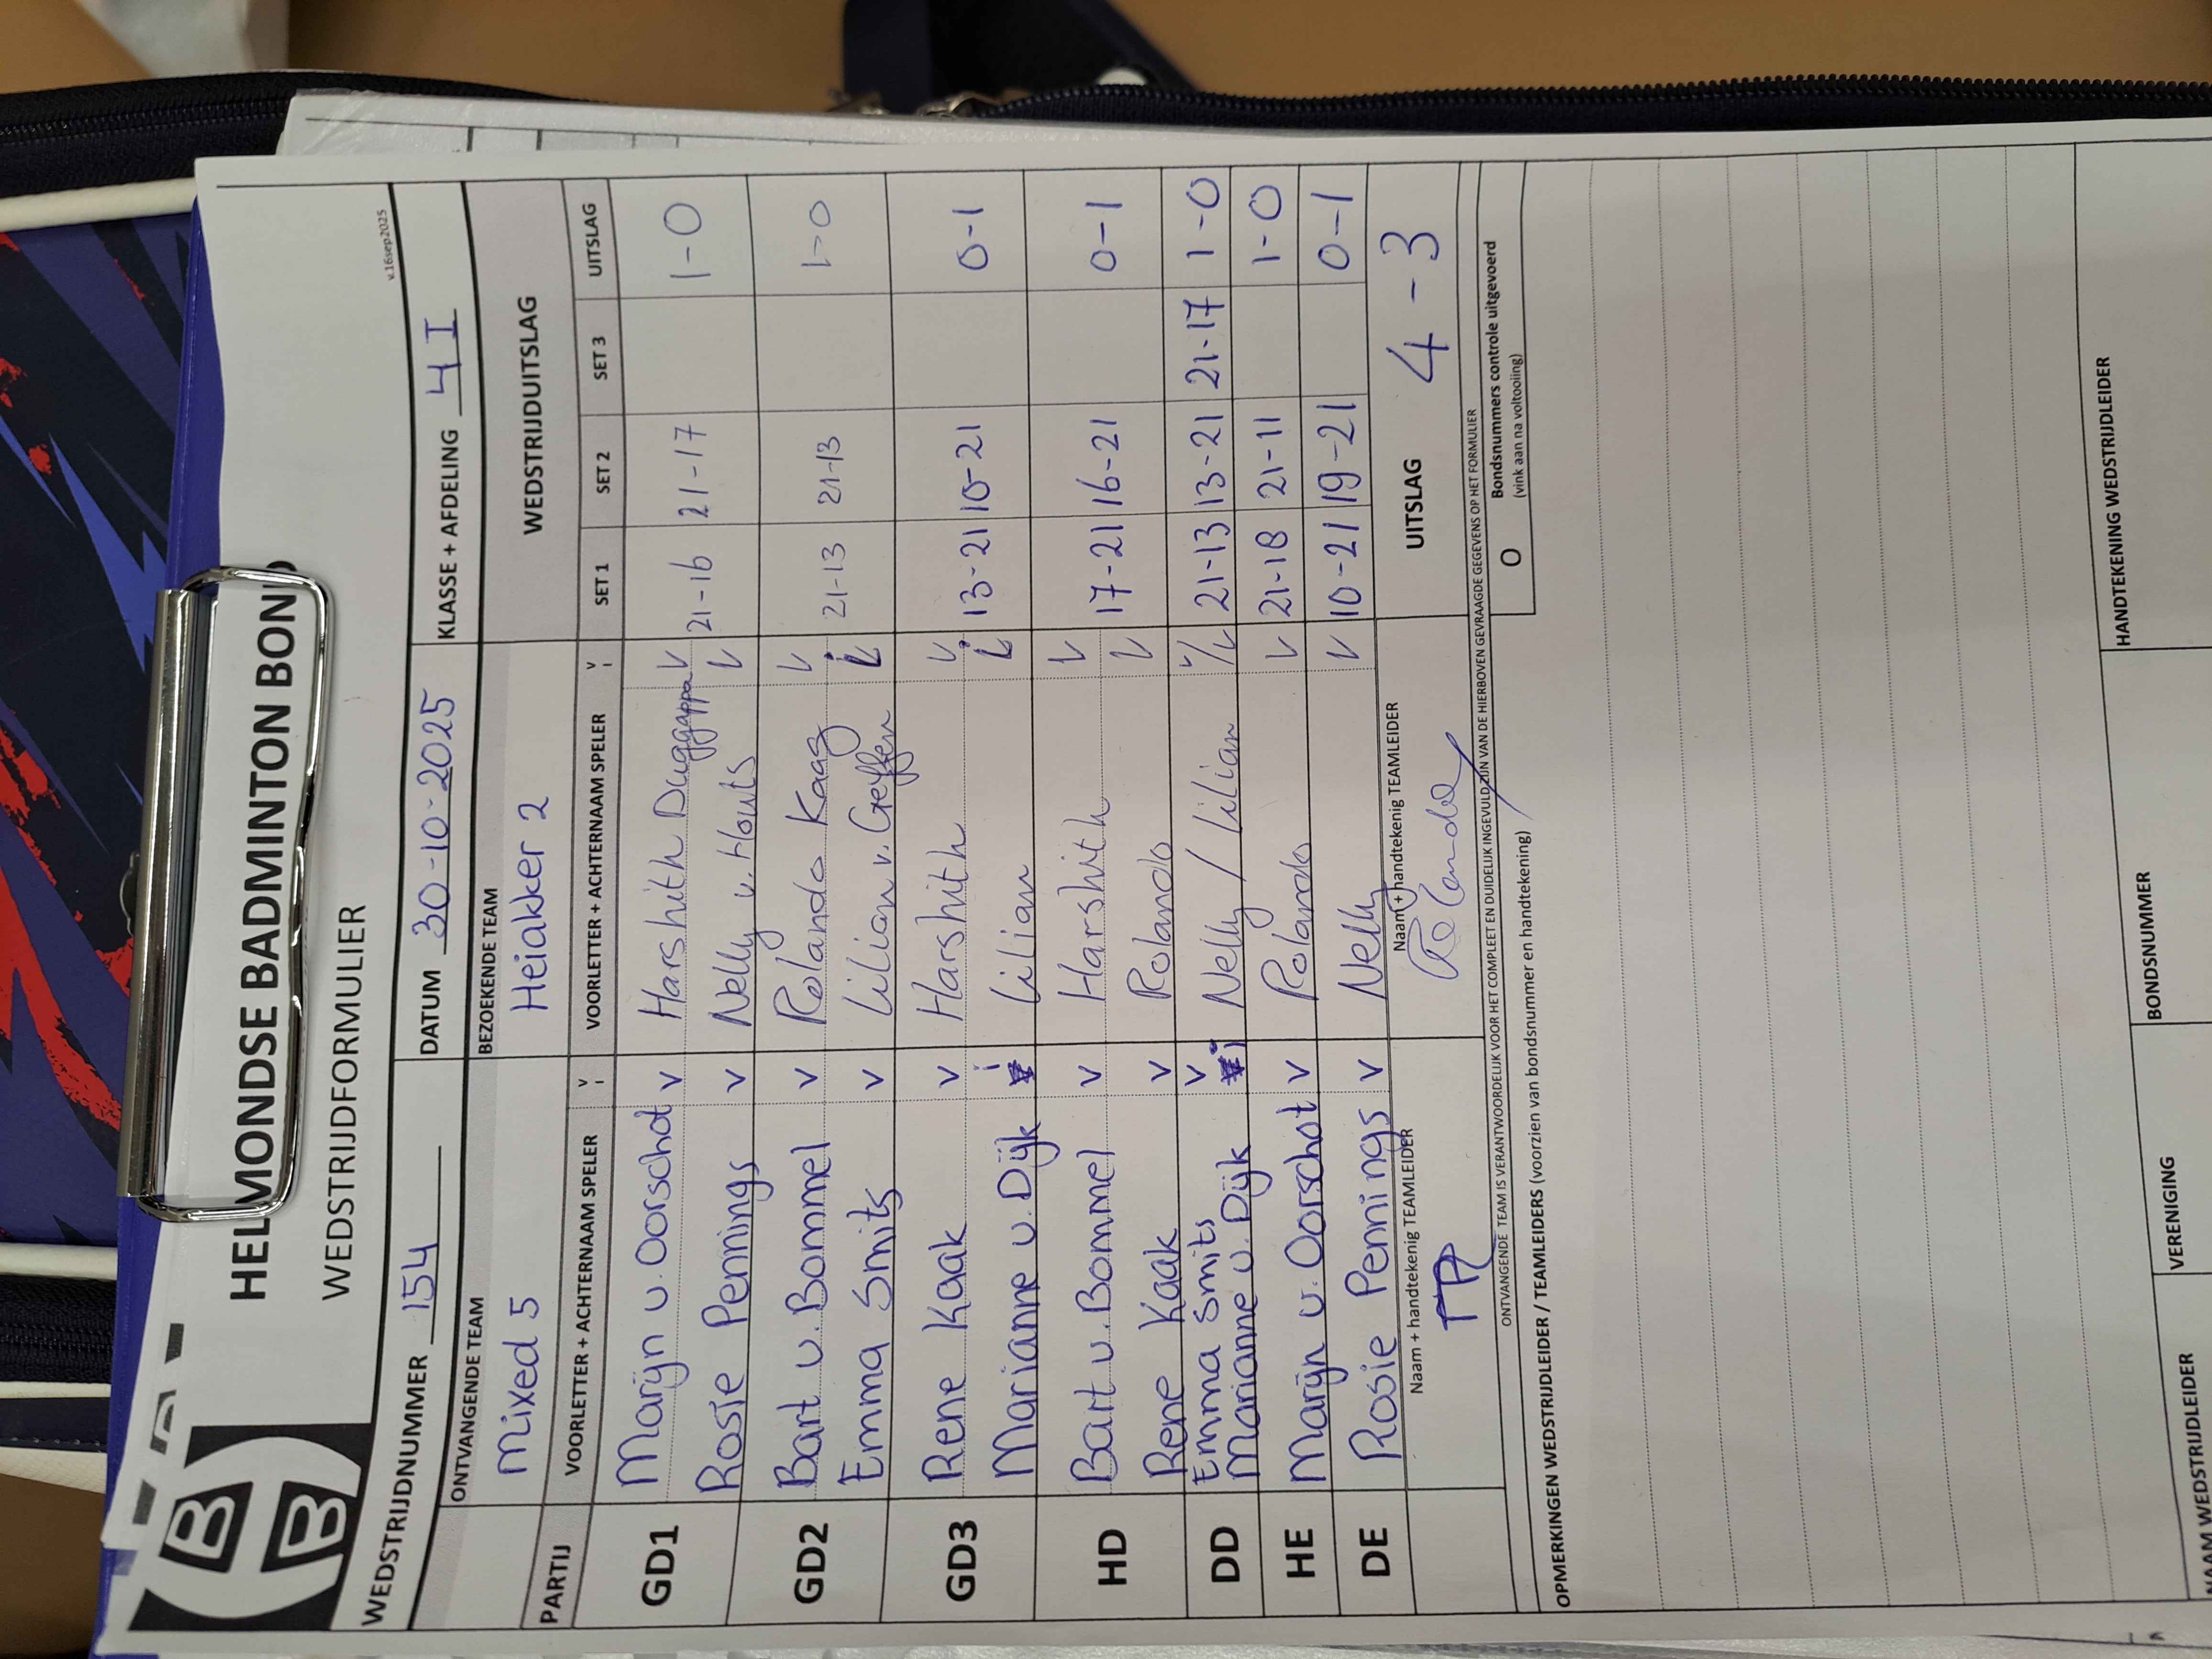 HELMONDSE BADMINTON BOND
WEDSTRIJDFORMULIER
v.16sep2025
WEDSTRIJDNUMMER 154 DATUM 30-10-2025 KLASSE + AFDELING 4 I
ONTVANGENDE TEAM BEZOEKENDE TEAM WEDSTRIJDUITSLAG
Mixed 5 Heiakker 2
PARTIJ VOORLETTER + ACHTERNAAM SPELER V I VOORLETTER + ACHTERNAAM SPELER V I SET 1 SET 2 SET 3 UITSLAG
GD1 Marijn v. Oorschot v Harshith Duggappa v 21-16 21-17 1-0
Rosie Pennings v Nelly v. Houts v
GD2 Bart v. Bommel v Rolando Kaag v 21-13 21-13 1-0
Emma Smits v Lilian v. Geffen i
GD3 Rene Kaak v Harshith v 13-21 10-21 0-1
Marianne v. Dijk i Lilian i
HD Bart v. Bommel v Harshith v 17-21 16-21 0-1
Rene Kaak v Rolando v
DD Emma Smits v Nelly / Lilian v/v 21-13 13-21 21-17 1-0
Marianne v. Dijk i
HE Marijn v. Oorschot v Rolando v 21-18 21-11 1-0
DE Rosie Pennings v Nelly v 10-21 19-21 0-1
Naam + handtekenig TEAMLEIDER Naam + handtekenig TEAMLEIDER UITSLAG 4 - 3
ONTVANGENDE TEAM IS VERANTWOORDELIJK VOOR HET COMPLEET EN DUIDELIJK INGEVULD ZIJN VAN DE HIERBOVEN GEVRAAGDE GEGEVENS OP HET FORMULIER
O Bondsnummers controle uitgevoerd
(vink aan na voltooiing)
OPMERKINGEN WEDSTRIJDLEIDER / TEAMLEIDERS (voorzien van bondsnummer en handtekening)
NAAM WEDSTRIJDLEIDER VERENIGING BONDSNUMMER HANDTEKENING WEDSTRIJDLEIDER